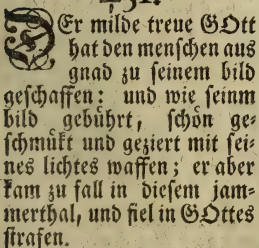 DEr milde treue GOtt
hat den menschen aus
gnad zu seinem bild
geschaffen: und wie seinm
bild gebührt, schön ge-
schmükt und geziert mit sei-
nes lichtes waffen; er aber
kam zu fall in diesem jam-
merthal, und fiel in GOttes
strafen.